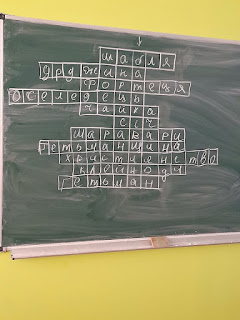 шабля
дружина
фортеця
оселедець
чайка
січ
шаравари
гетьманщина
християнство
клейноди
гетьман